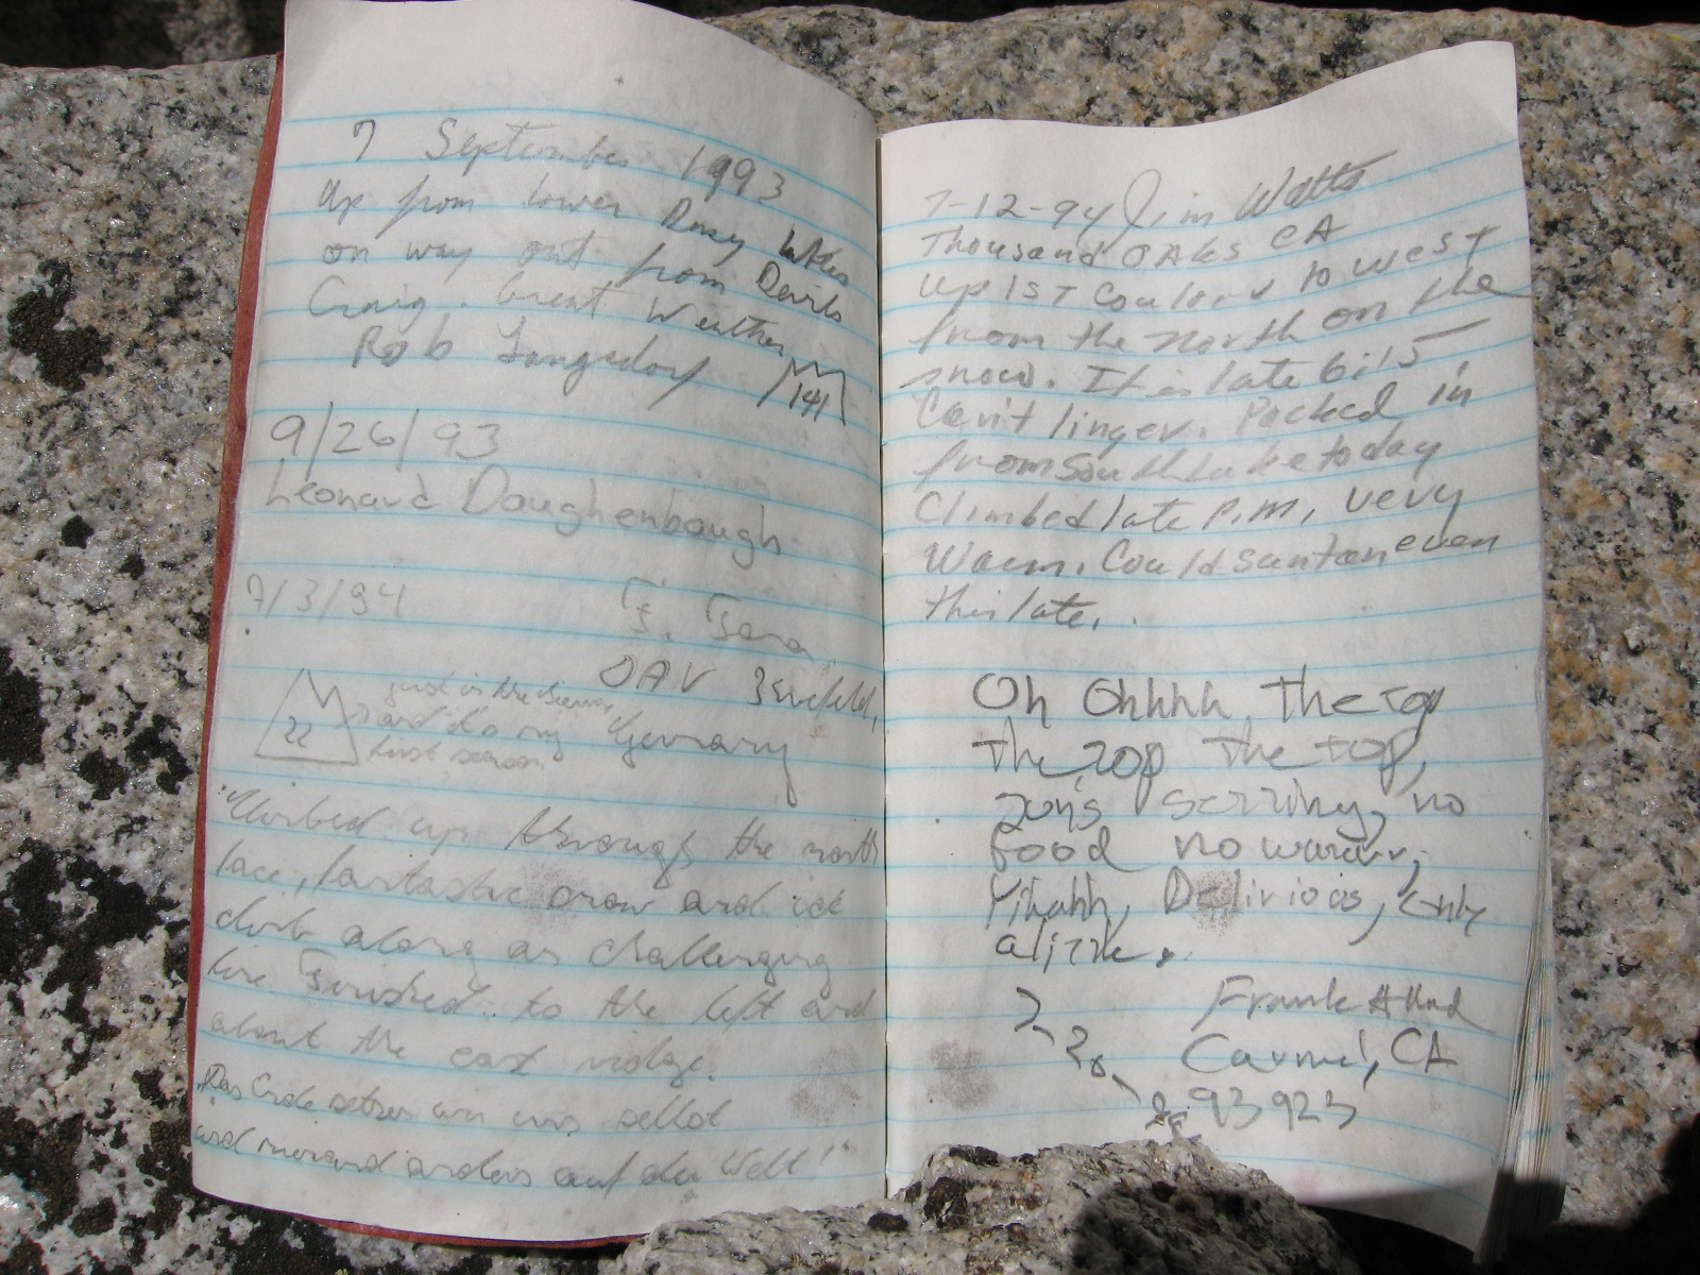 7 September 1993
Up from lower Dusy
on way out from Devils
Craig. Great Weather
Rob Langsdorf 141
9/26/93
Leonard Daughenbaugh
7/3/94
DAV
just in the Sierras
22 and do my Germany
first season
"Climbed up through the north
face, fantastic snow and ice
climb along an challenging
line. Finished to the left and
about the east ridge.
Das Ende setzen wir uns selbst
und niemand anders auf der Welt!"
7-12-94 Jim Watts
Thousand OAks CA
up 1st Couloir to west
from the north on the
snow. It is late 6:15
Can't linger. Packed in
from South Lake today
Climbed late P.M, very
Warm. Could suntan even
this late.
Oh Ohhhh The top
The top The top,
sun's setting, no
food no water,
Yihahh, Delirious, only
alittle.
Frank
Carmel, CA
93923